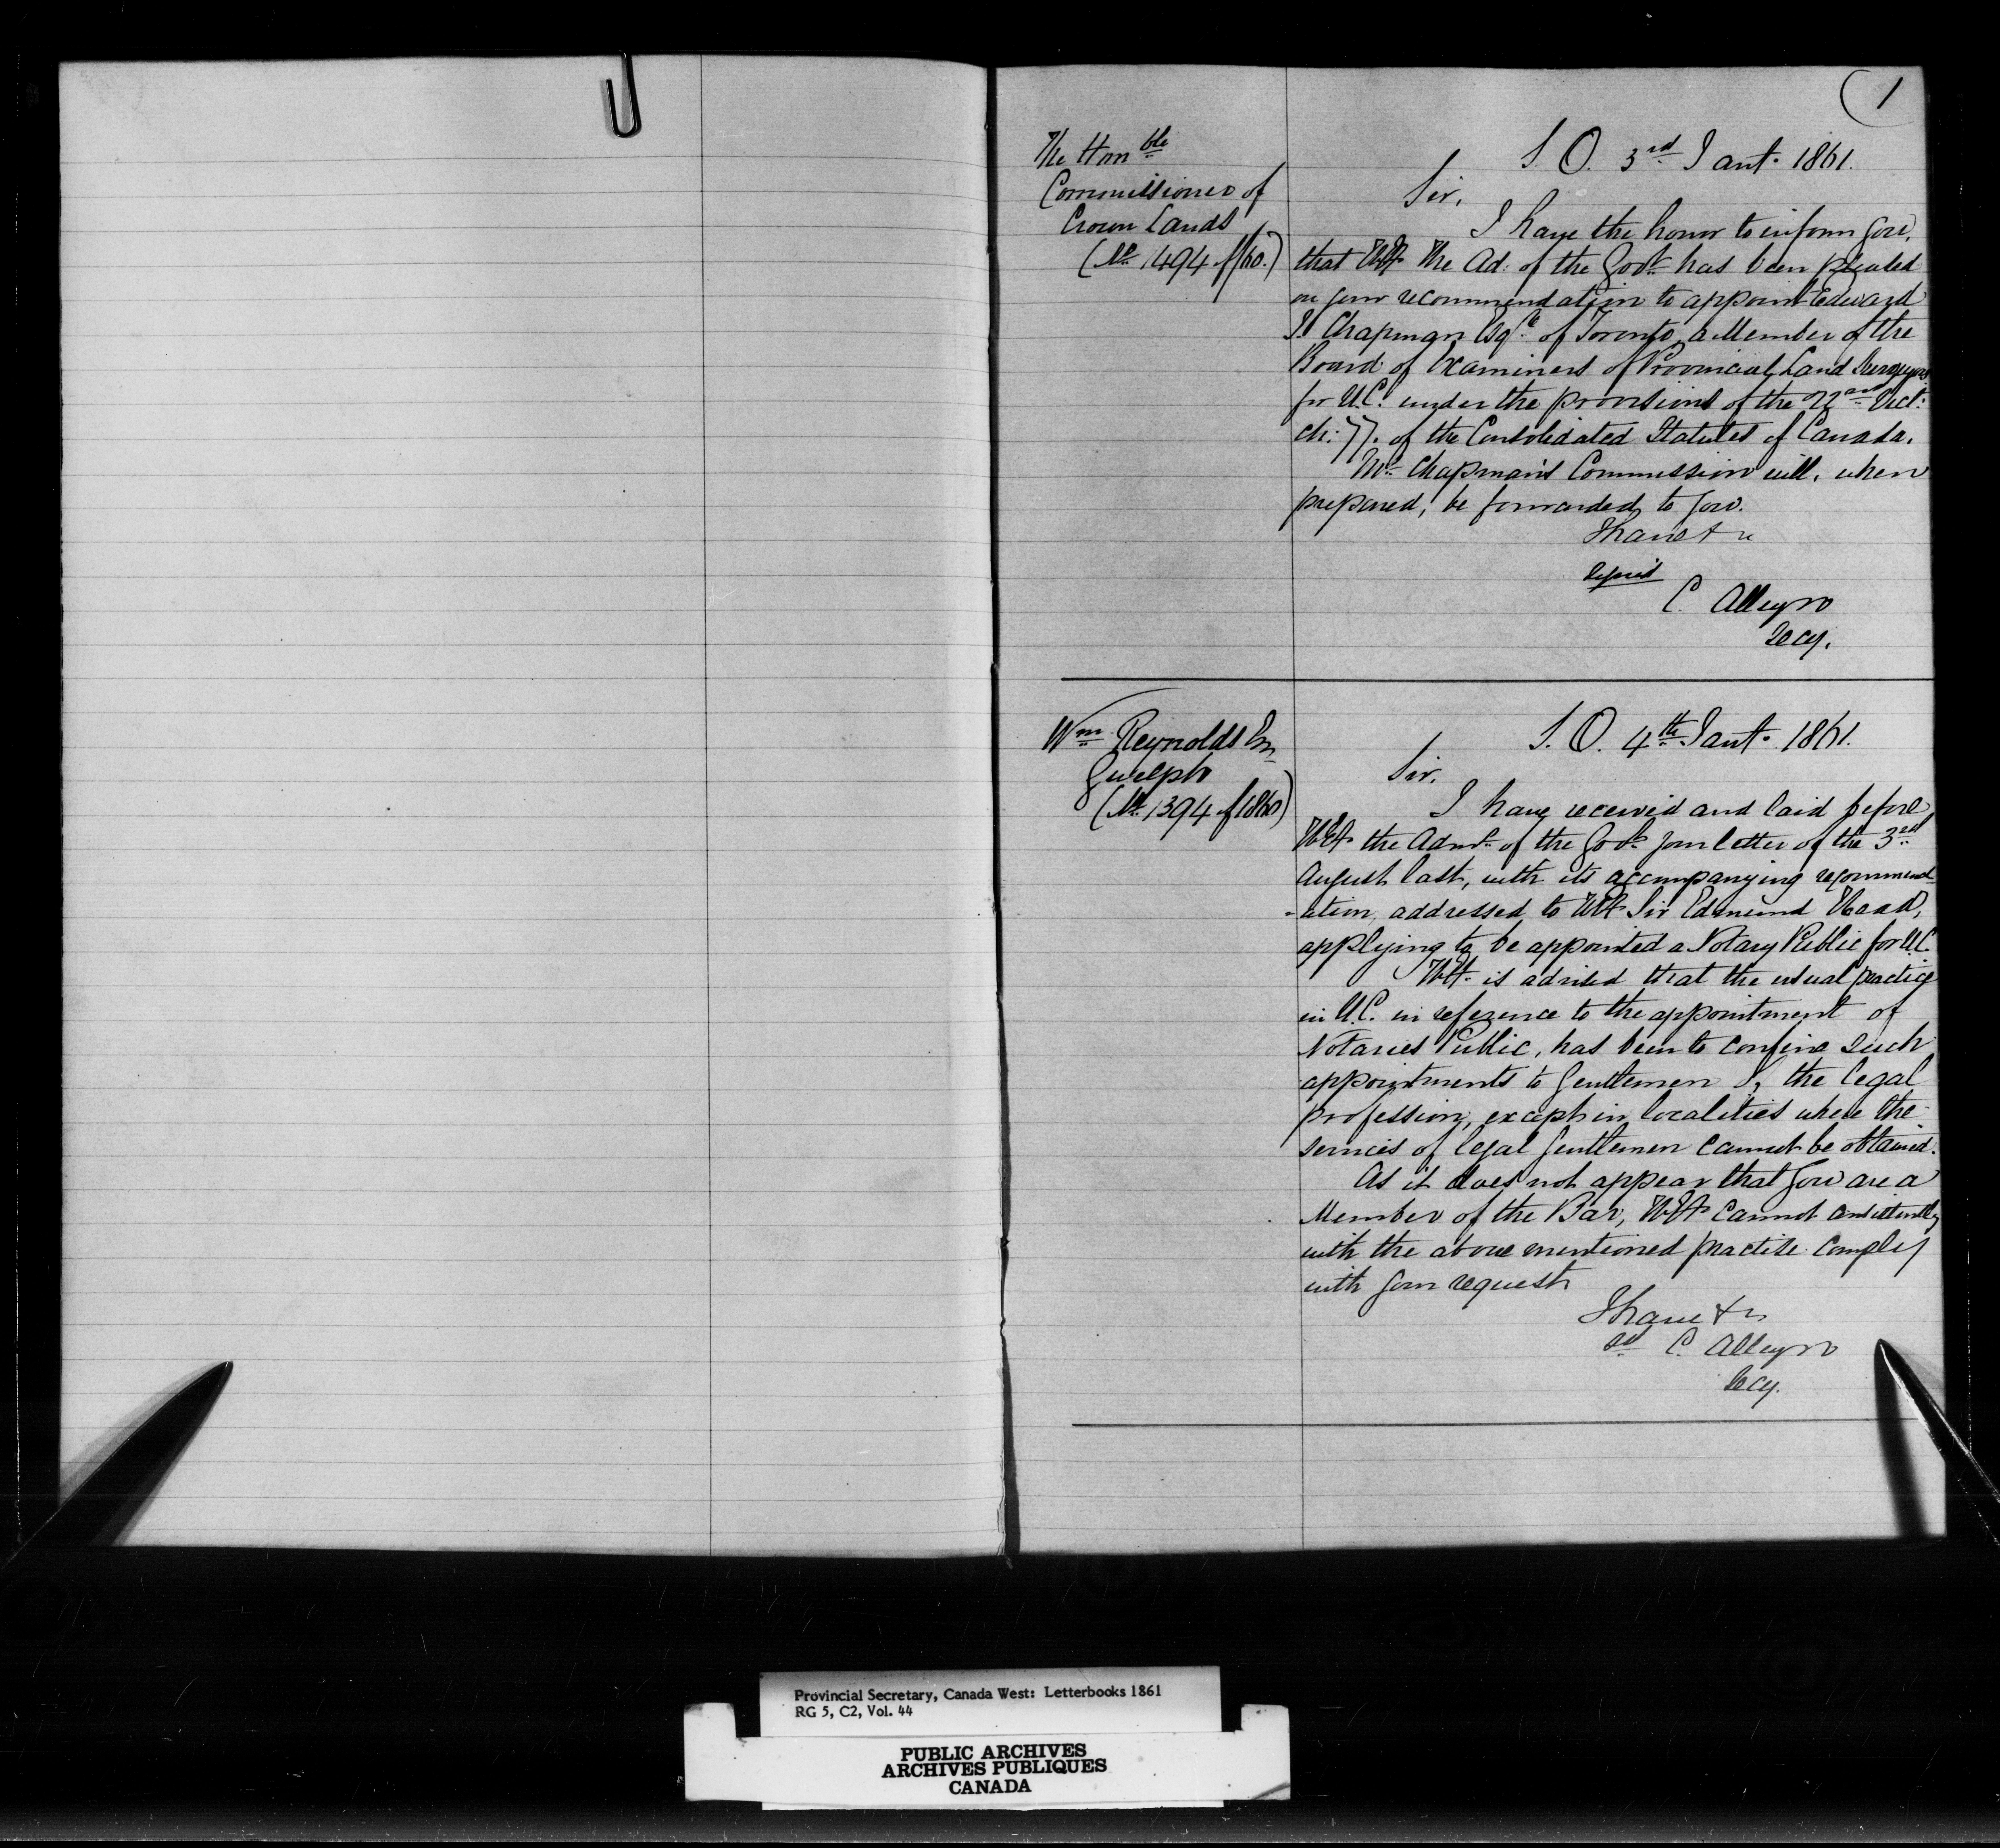 (1
The Honble
Commissioner of
Crown Lands
(No. 1494 of /60.)
S. O. 3rd Jany. 1861.
Sir,
I have the honor to inform you,
that HEx The Ad: of the Govt. has been pleased
on your recommendation to appoint Edward
J. Chapman Esqre. of Toronto, a Member of the
Board of Examiners of Provincial Land Surveyors
for U.C. under the provisions of the 22nd Vict:
ch: 77. of the Consolidated Statutes of Canada.
Mr. Chapman's Commission will, when
prepared, be forwarded to you.
I have &c
Signed
C. Alleyn
Secy.
Wm. Reynolds Esq
Guelph
(No. 1394 of 1860)
S. O. 4th. Jany. 1861.
Sir.
I have received and laid before
HEx the Admr. of the Govt. your letter of the 3rd
August last, with its accompanying recommend-
-ation, addressed to HEx Sir Edmund Head,
applying to be appointed a Notary Public for U.C.
HEx. is advised that the usual practice
in U.C. in reference to the appointment of
Notaries Public, has been to confine such
appointments to Gentlemen of the legal
profession, except in localities where the
services of legal Gentlemen cannot be obtained.
As it does not appear that you are a
Member of the Bar, HEx cannot consistently
with the above mentioned practise comply
with your request
I have &c
Sd C. Alleyn
Secy.
Provincial Secretary, Canada West: Letterbooks 1861
RG 5, C2, Vol. 44
PUBLIC ARCHIVES
ARCHIVES PUBLIQUES
CANADA